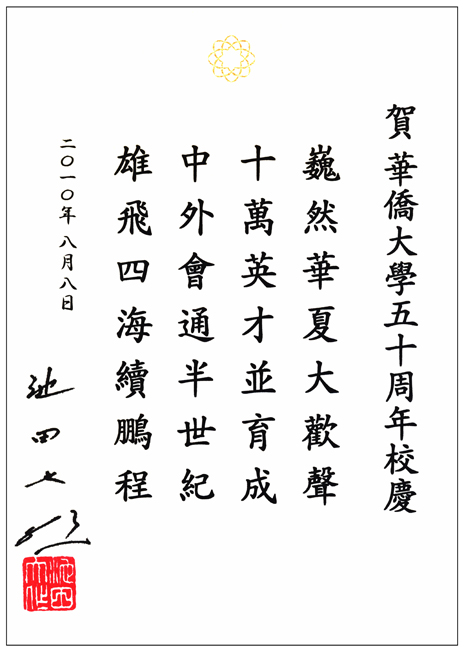 賀華僑大學五十周年校慶
巍然華夏大歡聲
十萬英才並育成
中外會通半世紀
雄飛四海續鵬程
二〇一〇年八月八日
池田大作